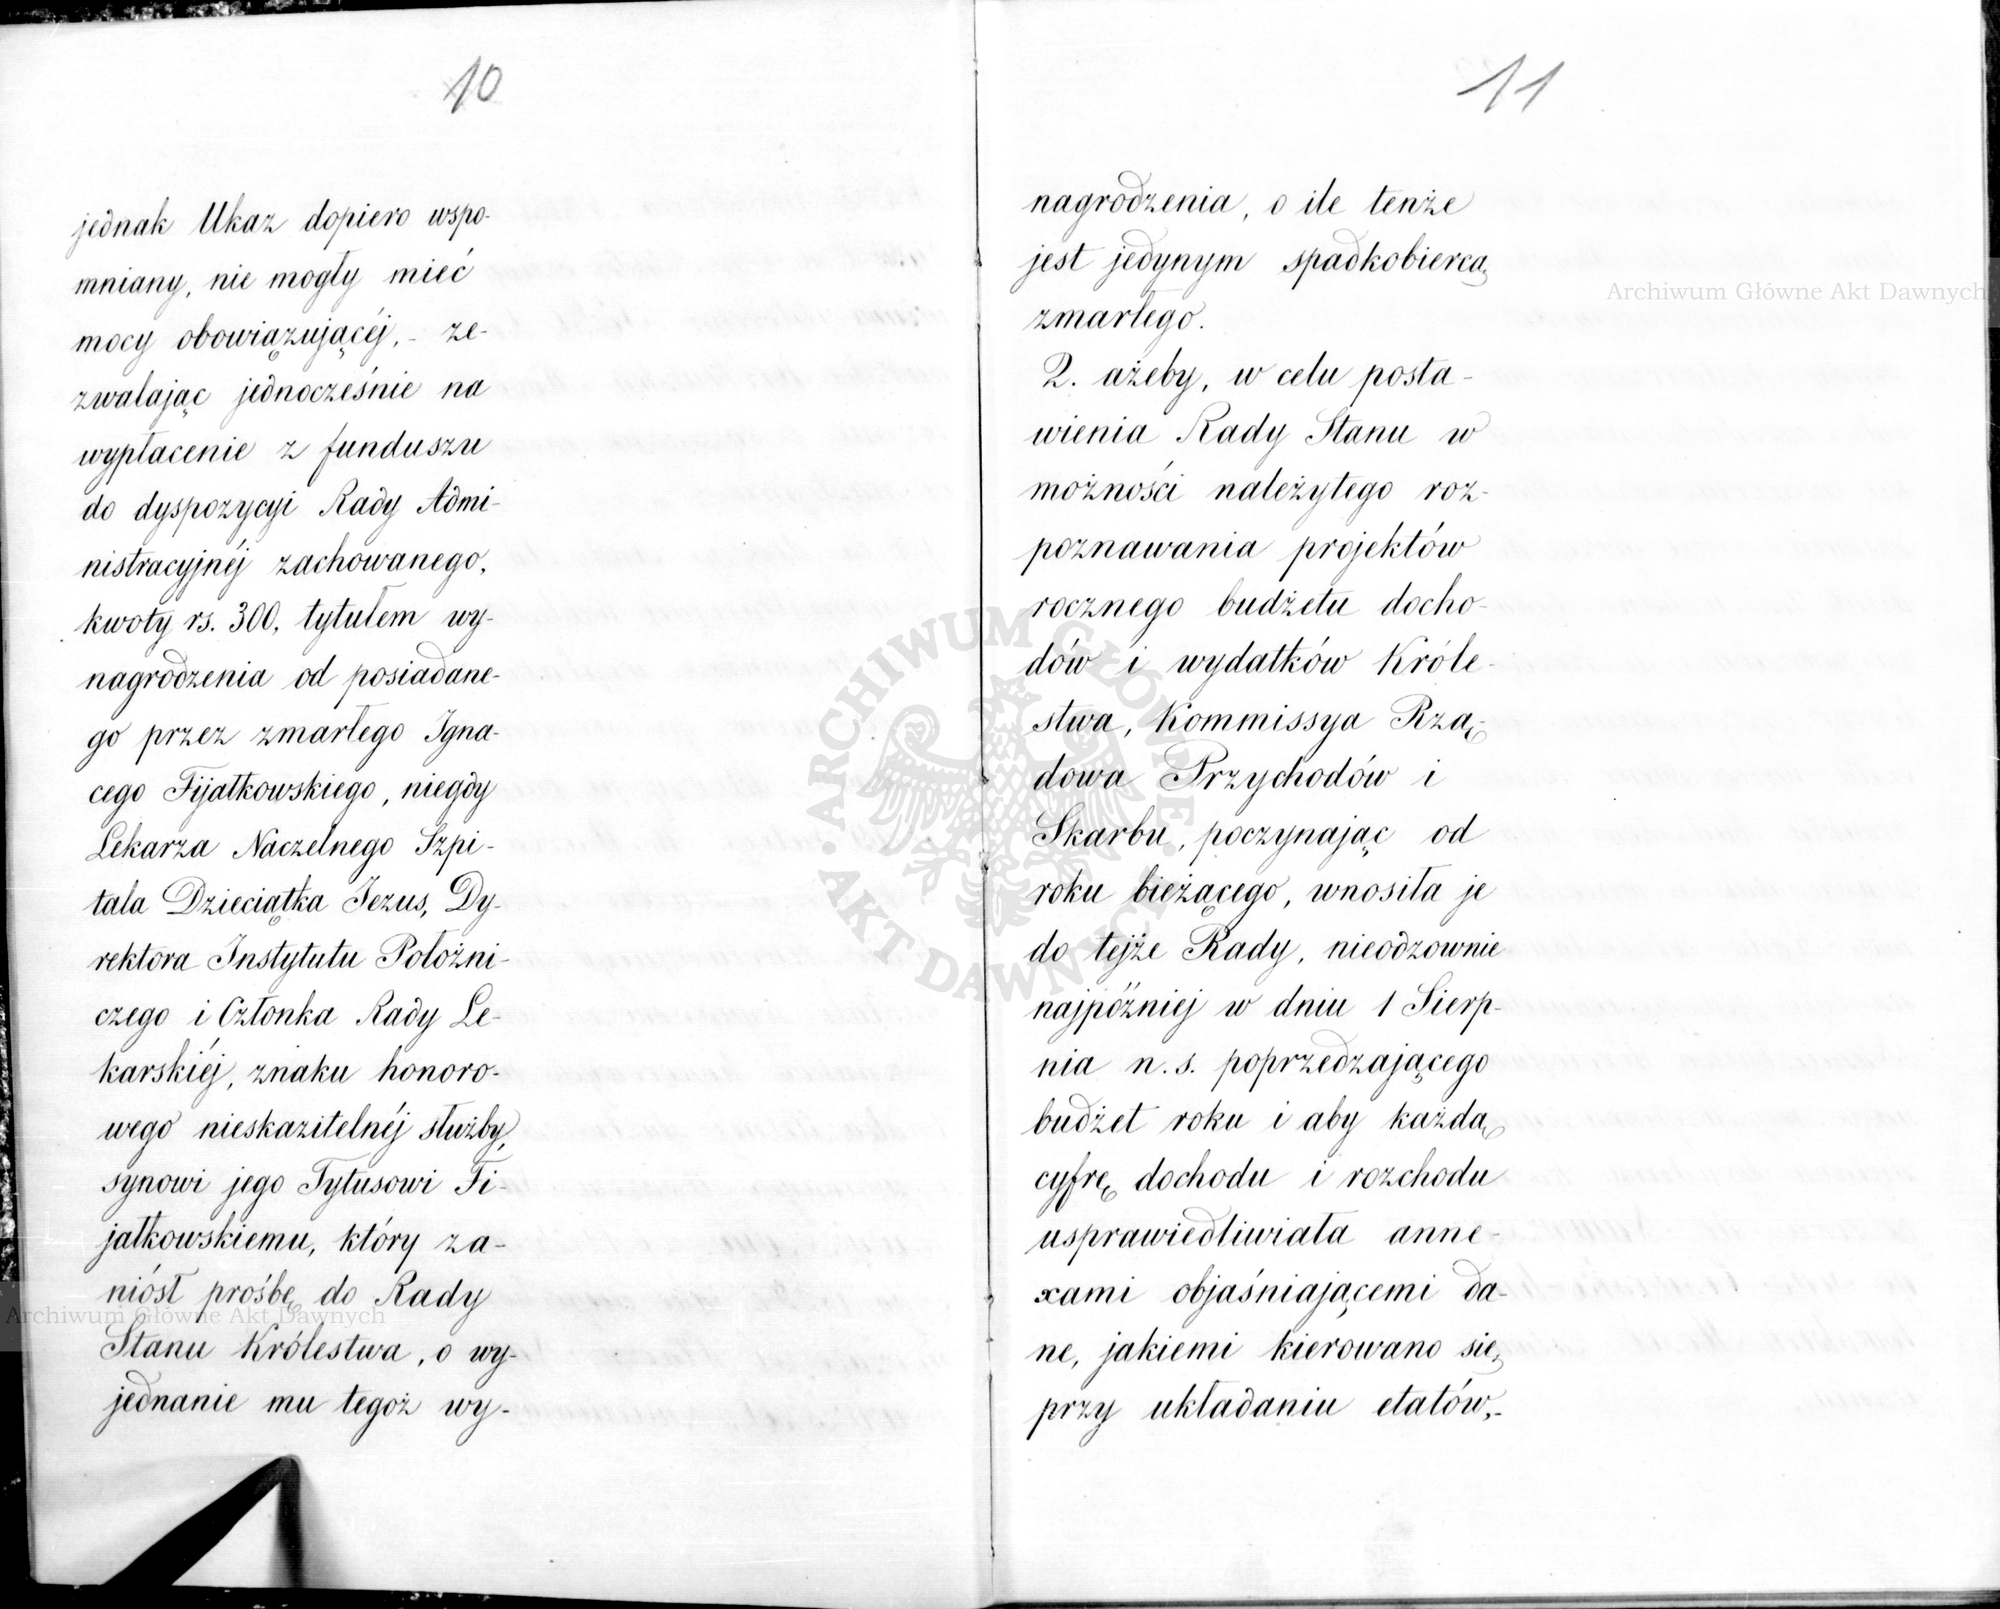 10
jednak Ukaz dopiero wspo-
mniany, nie mogły mieć
mocy obowiązującéj, - ze-
zwalając jednocześnie na
wypłacenie z funduszu
do dyspozycyi Rady Admi-
nistracyjnéj zachowanego,
kwoty rs. 300, tytułem wy-
nagrodzenia od posiadane-
go przez zmarłego Igna-
cego Fijałkowskiego, niegdy
Lekarza Naczelnego Szpi-
tala Dzieciątka Jezus, Dy-
rektora Instytutu Położni-
czego i Członka Rady Le-
karskiéj, znaku honoro-
wego nieskazitelnéj służby,
synowi jego Tytusowi Fi-
jałkowskiemu, który za-
niósł prośbę do Rady
Stanu Królestwa, o wy-
jednanie mu tegoż wy-
11
nagrodzenia, o ile tenże
jest jedynym spadkobiercą
zmarłego.
2. ażeby, w celu posta-
wienia Rady Stanu w
możności należytego roz-
poznawania projektów
rocznego budżetu docho-
dów i wydatków Króle-
stwa, Kommissya Rzą-
dowa Przychodów i
Skarbu, poczynając od
roku bieżącego, wnosiła je
do tejże Rady, nieodzownie
najpóźniej w dniu 1 Sierp-
nia n. s. poprzedzającego
budżet roku i aby każdą
cyfrę dochodu i rozchodu
usprawiedliwiała anne-
xami objaśniającemi da-
ne, jakiemi kierowano się
przy układaniu etatów,-
Archiwum Główne Akt Dawnych
Archiwum Główne Akt Dawnych
ARCHIWUM GŁÓWNE AKT DAWNYCH